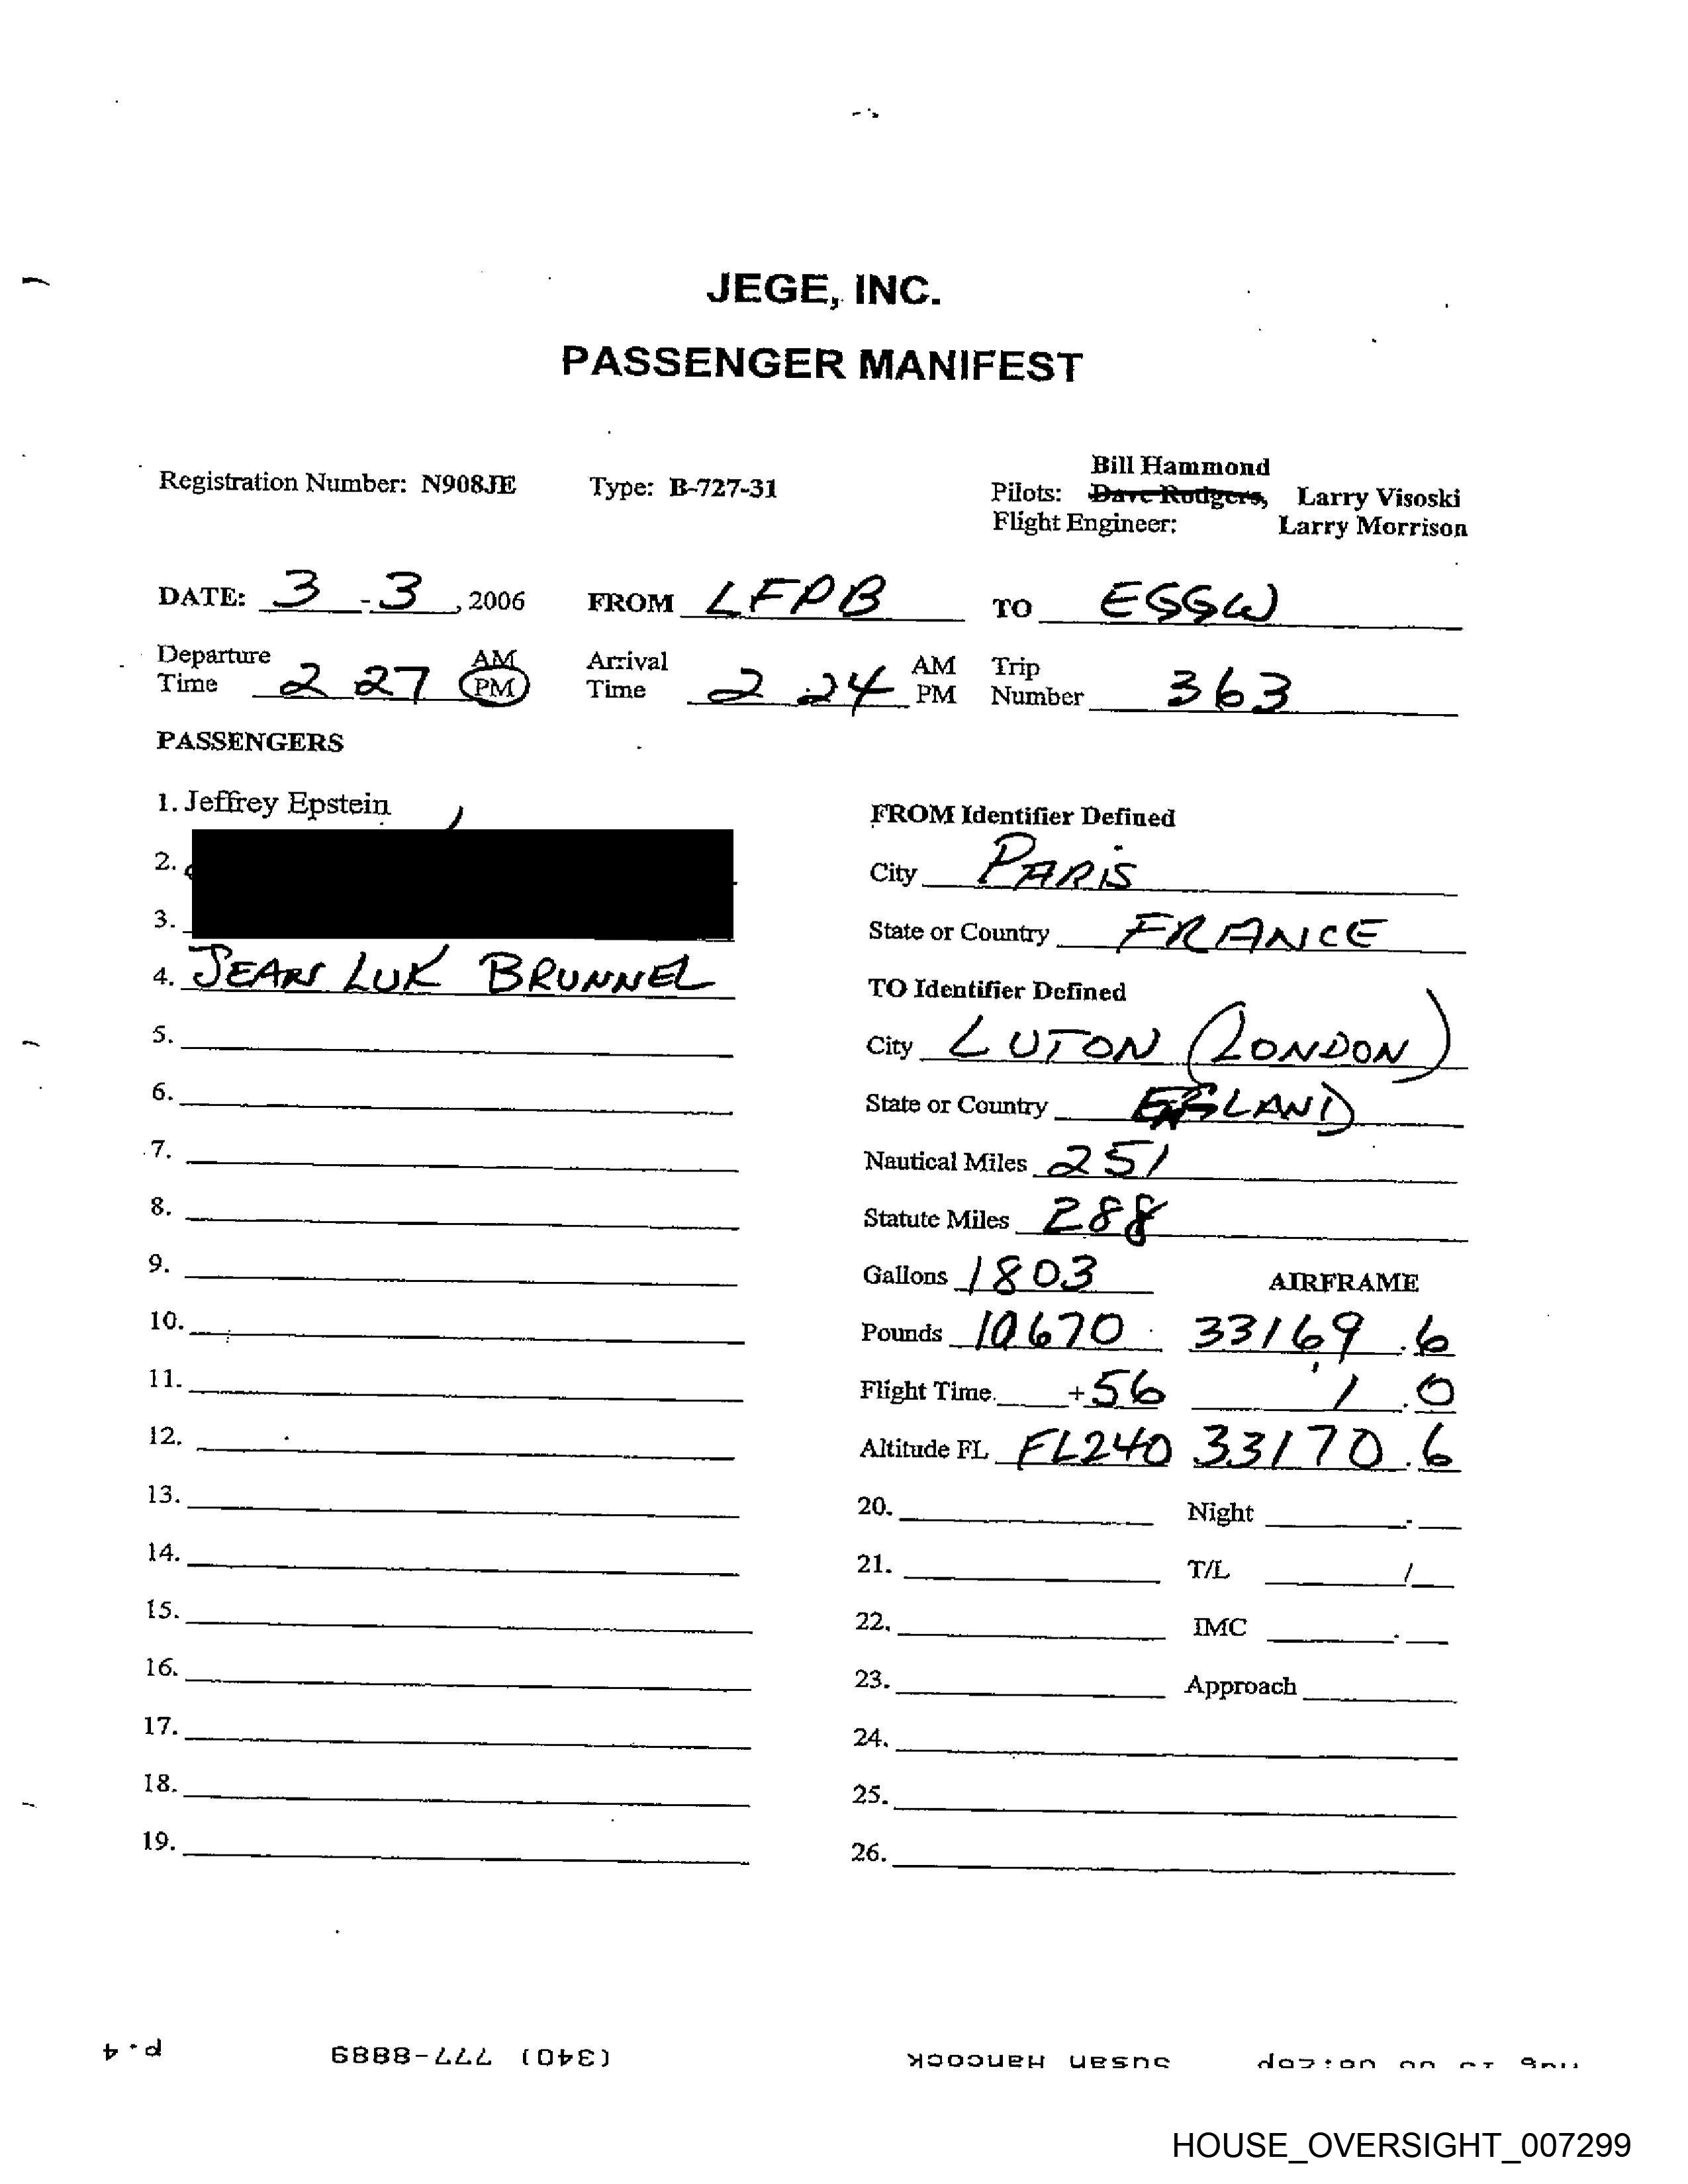 JEGE, INC.
PASSENGER MANIFEST
Registration Number: N908JE Type: B-727-31 Bill Hammond
Pilots: Dave Rodgers, Larry Visoski
Flight Engineer: Larry Morrison
DATE: 3 - 3, 2006 FROM LFPB TO ESSW
Departure Time 2 27 AM PM Arrival Time 2 24 AM PM Trip Number 363
PASSENGERS
1. Jeffrey Epstein
2.
3.
4. JEAN LUK BRUNNEL
5.
6.
7.
8.
9.
10.
11.
12.
13.
14.
15.
16.
17.
18.
19.
FROM Identifier Defined
City PARIS
State or Country FRANCE
TO Identifier Defined
City LUTON (LONDON)
State or Country ENGLAND
Nautical Miles 251
Statute Miles 288
Gallons 1803 AIRFRAME
Pounds 10670 33169.6
Flight Time. +56 1.0
Altitude FL FL240 33170.6
20. Night
21. T/L /
22. IMC
23. Approach
24.
25.
26.
p.4 (340) 777-8889 Susan Hancock
HOUSE_OVERSIGHT_007299